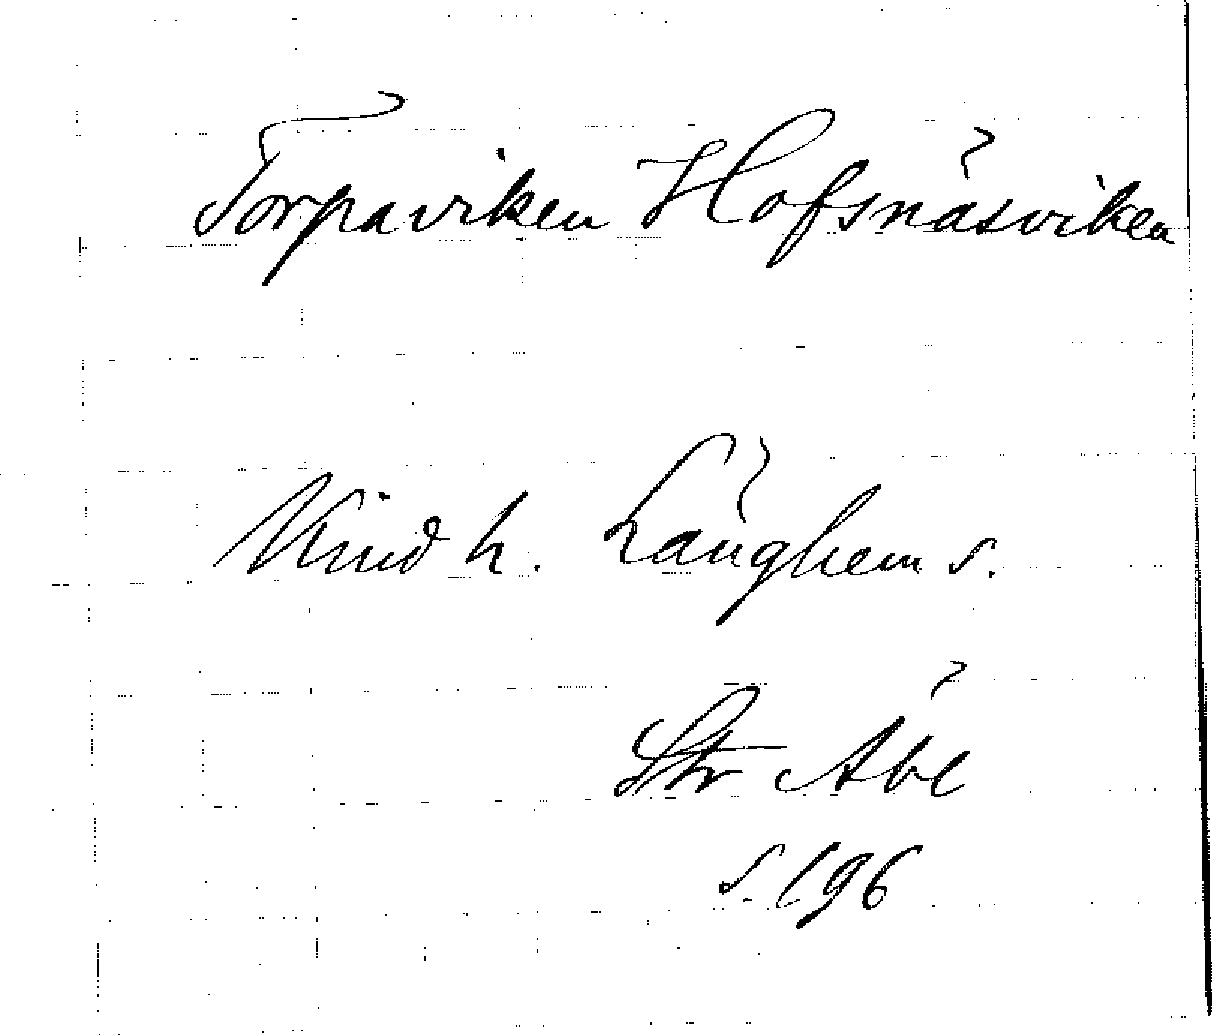 Torpaviken Hofsnäsviken
Kind h. Länghem s.
Str
s. 196